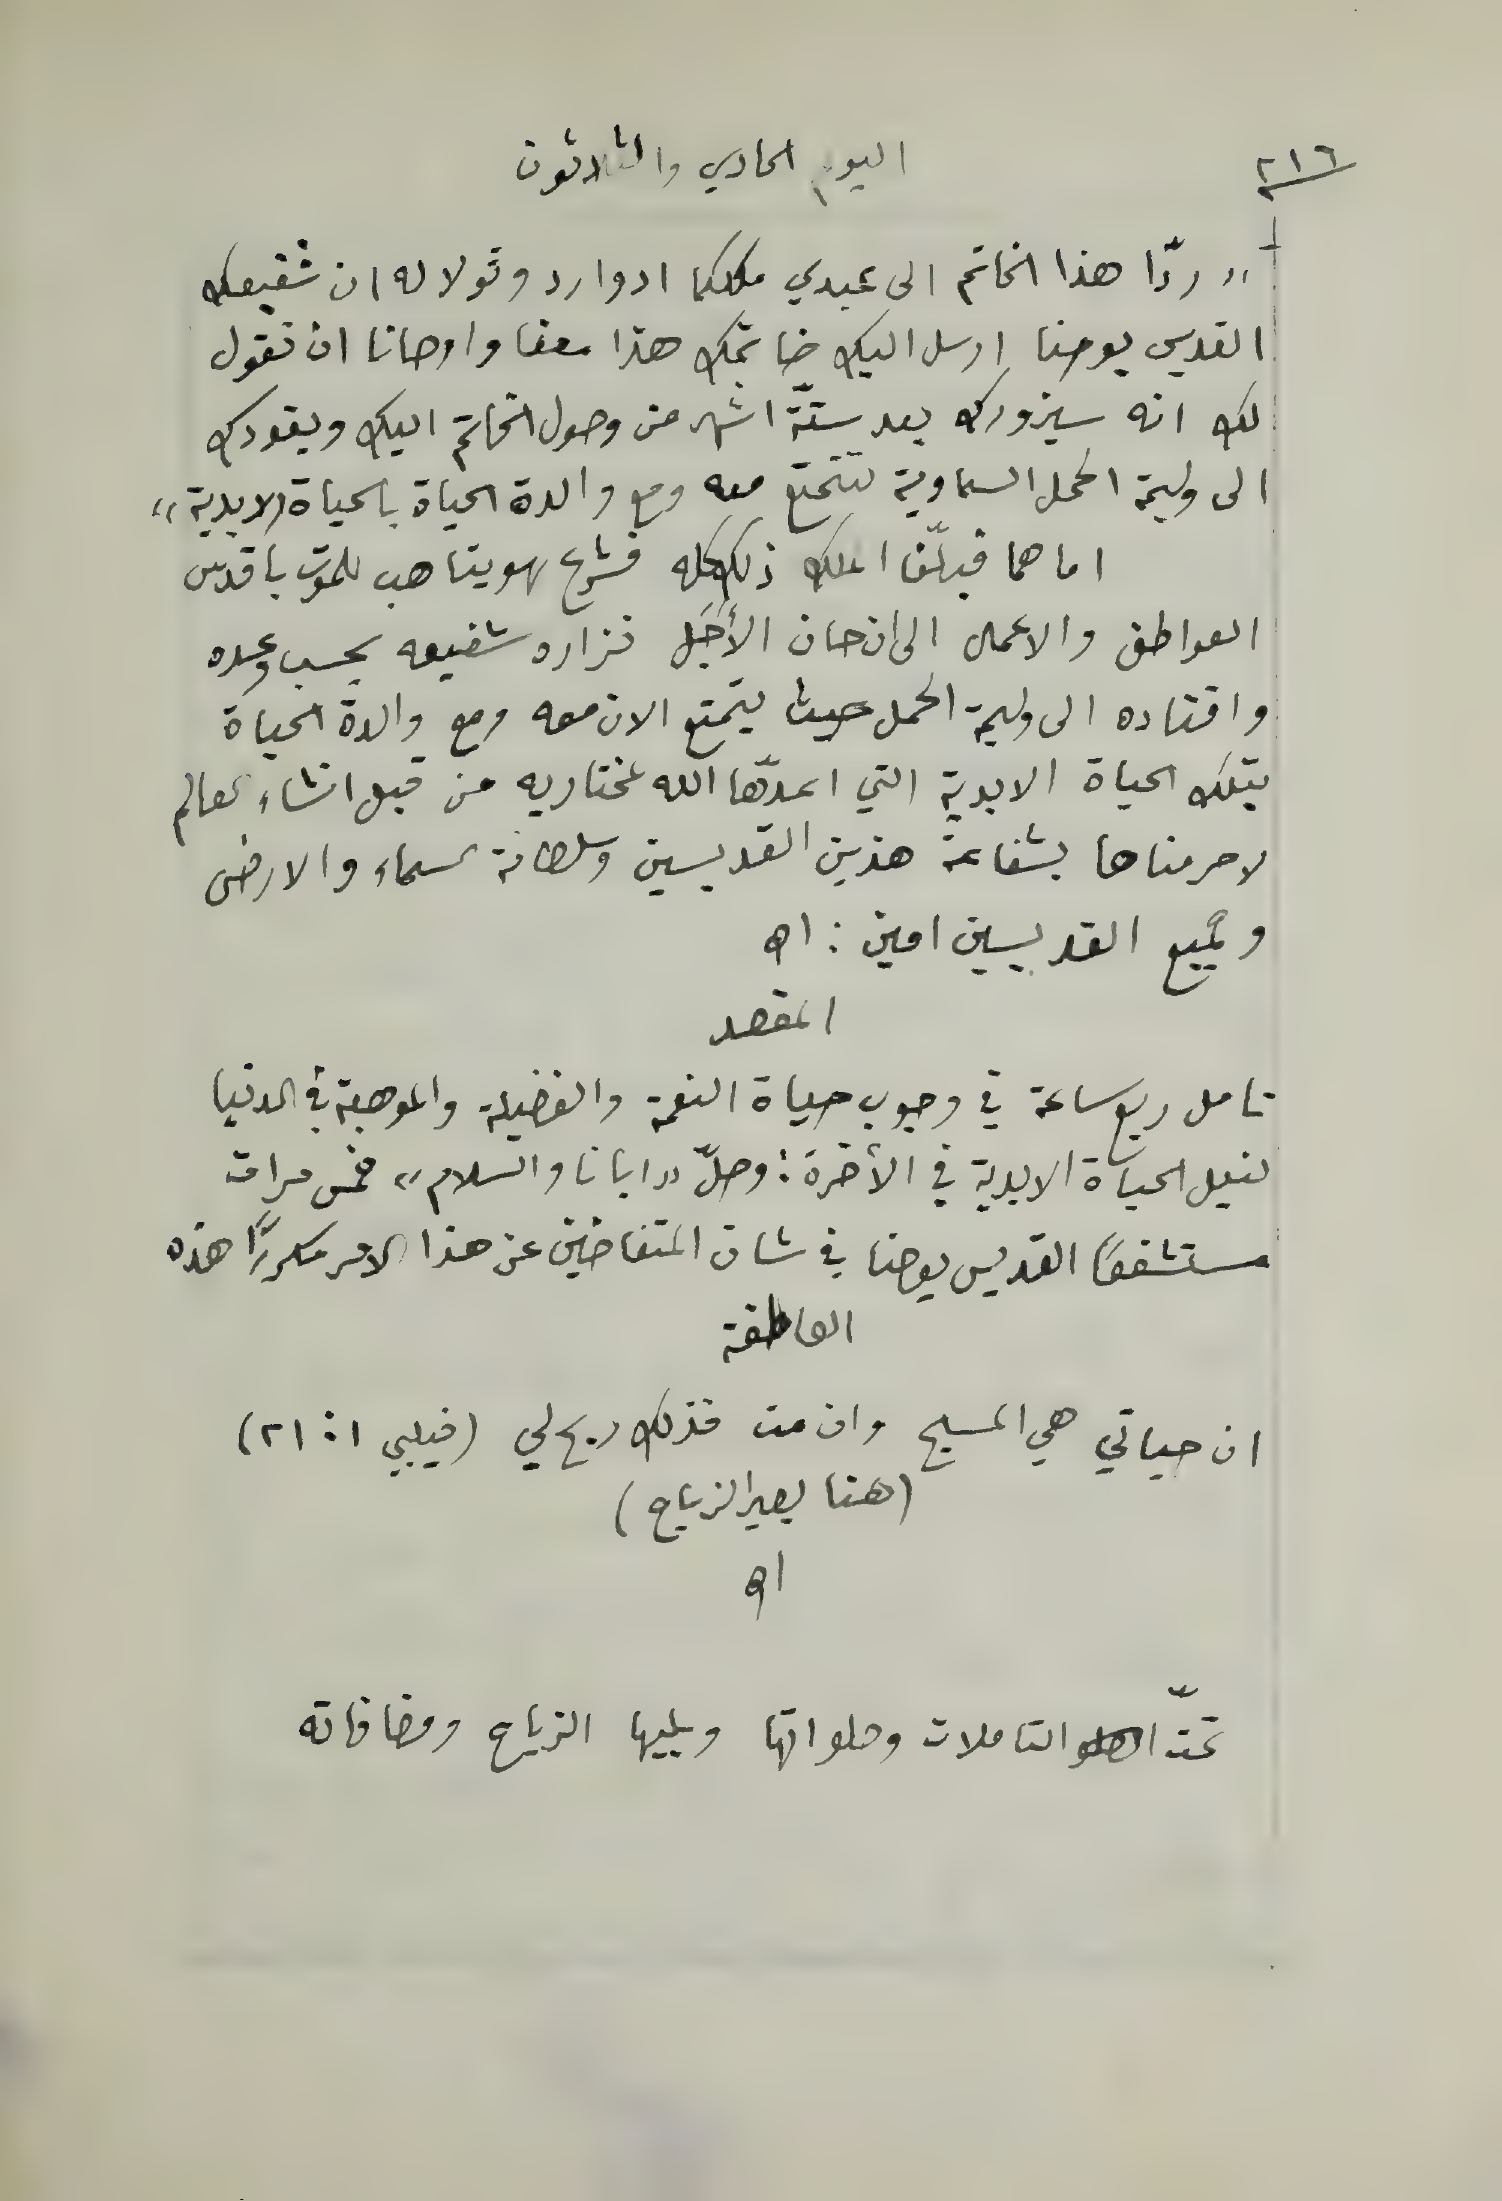 ٢١٦
اليوم الحادي والثلاثون
"ردّا هذا الخاتم الى عبدي ملككما ادوارد وقولا له ان شفيعك
القديس يوحنا ارسل اليك خاتمك هذا معنا واوصانا ان نقول
لك انه سيزورك بعد ستّة اشهر من وصول الخاتم اليك ويقودك
الى وليمة الحمل السماوية لتتمتع معه ومع والدة الحياة بالحياة الابدية"
اما هما فبلّغا الملك ذلك كله فشرع يتاهب للموت باقدس
العواطف والاعمال الى ان حان الأجَل فزاره شفيعه بحسب وعده
واقتاده الى وليمة الحمل حيث يتمتع الان معه ومع والدة الحياة
بتلك الحياة الابدية التي اعدّها الله لمختاريه من قبل انشاء العالم
لا حرمناها بشفاعة هذين القديسين وسلطانة السماء والارض
وجميع القديسين امين : اه
المقصد
تامل ربع ساعة في وجوب حياة النعمة والفضيلة والموهبة في الدنيا
لنيل الحياة الابدية في الأخرة : وصلّ "ابانا والسلام" خمس مرات
مستشفعًا القديس يوحنا في شان المتغاضين عن هذا الامر مكررًا هذه
العاطفة
ان حياتي هي المسيح وان مت فذلك ربح لي (فيلبي ١ : ٢١)
(هنا يصير الزياح)
اه
تمّت التاملات وصلواتها ويليها الزياح ومضافاته